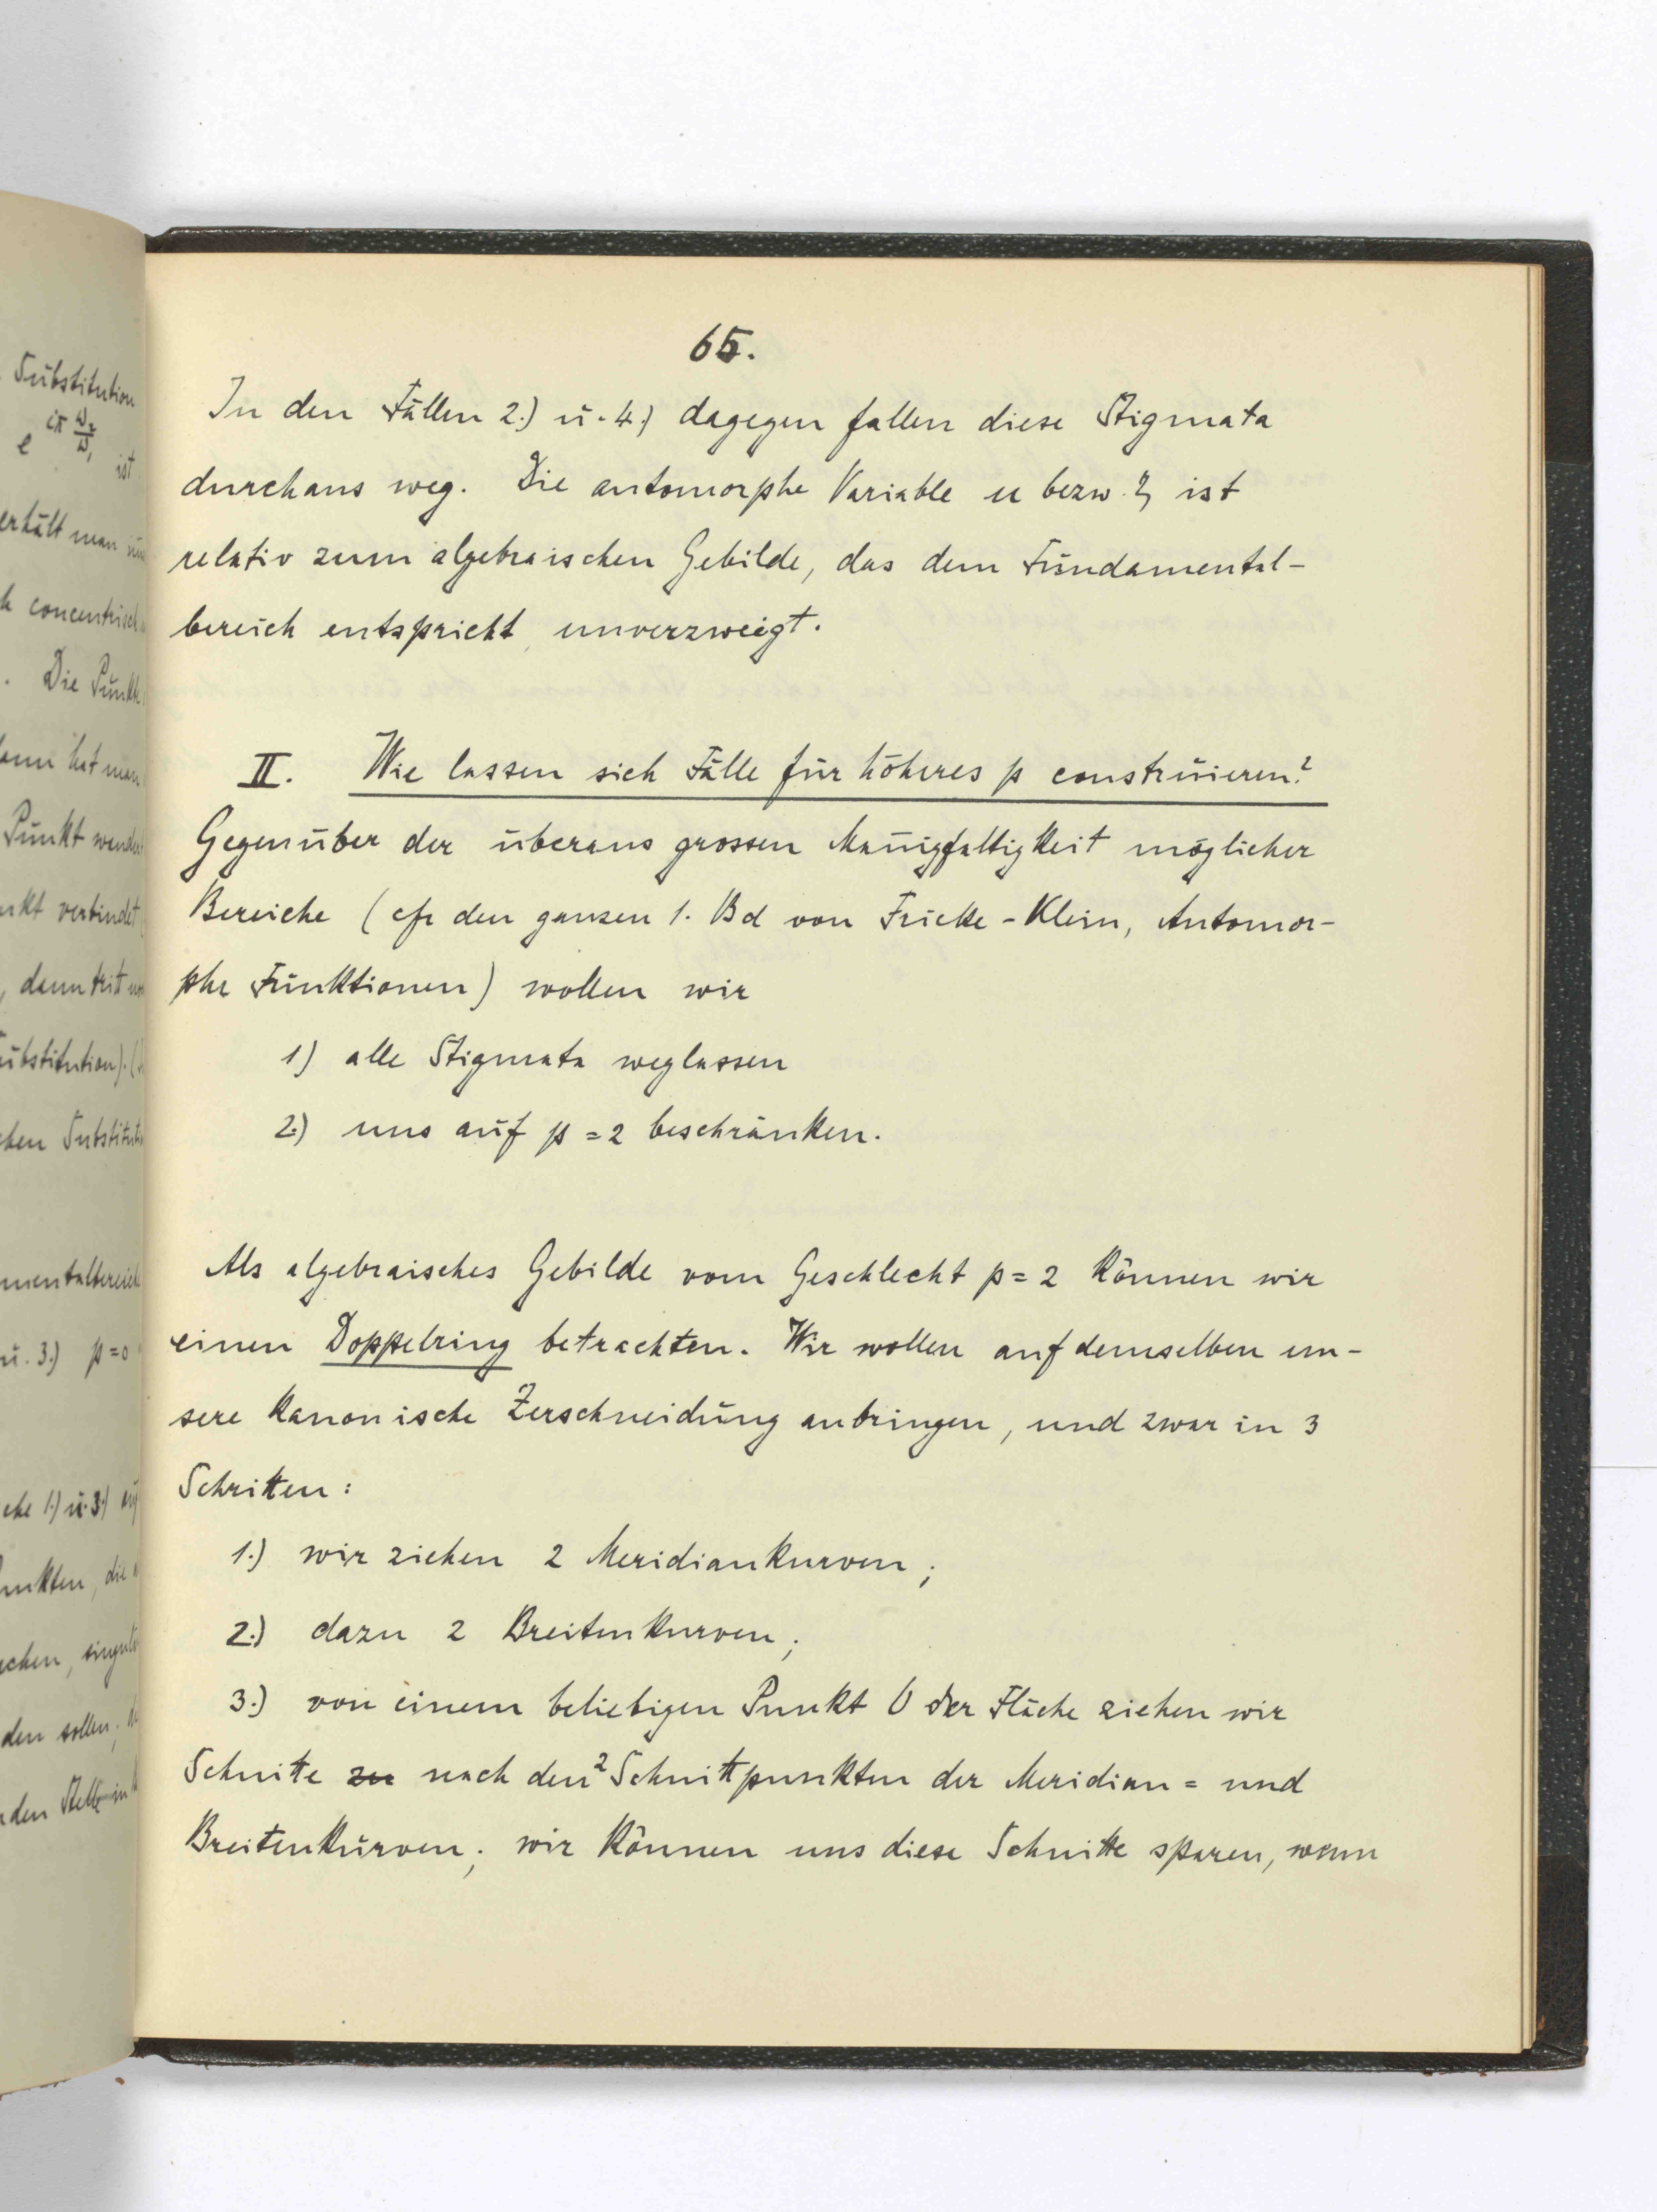 65.
In den Fällen 2.) u. 4.) dagegen fallen diese Stigmata
durchaus weg. Die automorphe Variable u bezw. η ist
relativ zum algebraischen Gebilde, das dem Fundamental-
bereich entspricht, unverzweigt.
II. Wie lassen sich Fälle für höheres p construieren?
Gegenüber der überaus grossen Mannigfaltigkeit möglicher
Bereiche (cfr den ganzen 1. Bd von Fricke-Klein, Automor-
phe Funktionen) wollen wir
1) alle Stigmata weglassen
2.) uns auf p = 2 beschränken.
Als algebraisches Gebilde vom Geschlecht p = 2 können wir
einen Doppelring betrachten. Wir wollen auf demselben un-
sere kanonische Zerschneidung anbringen, und zwar in 3
Schritten:
1.) wir ziehen 2 Meridiankurven;
2.) dazu 2 Breitenkurven;
3.) von einem beliebigen Punkt O der Fläche ziehen wir
Schnitte zu nach den 2 Schnittpunkten der Meridian= und
Breitenkurven; wir können uns diese Schnitte sparen, wenn
Substitution
e^{iπ ω₂/ω₁} ist
erhält man
concentrisch
. Die Punkte
hat man
Punkt
verbindet
, dann tritt
Substitution). (
Substitut
u. 3.) p=0
1.) u. 3.)
, die
den sollen,